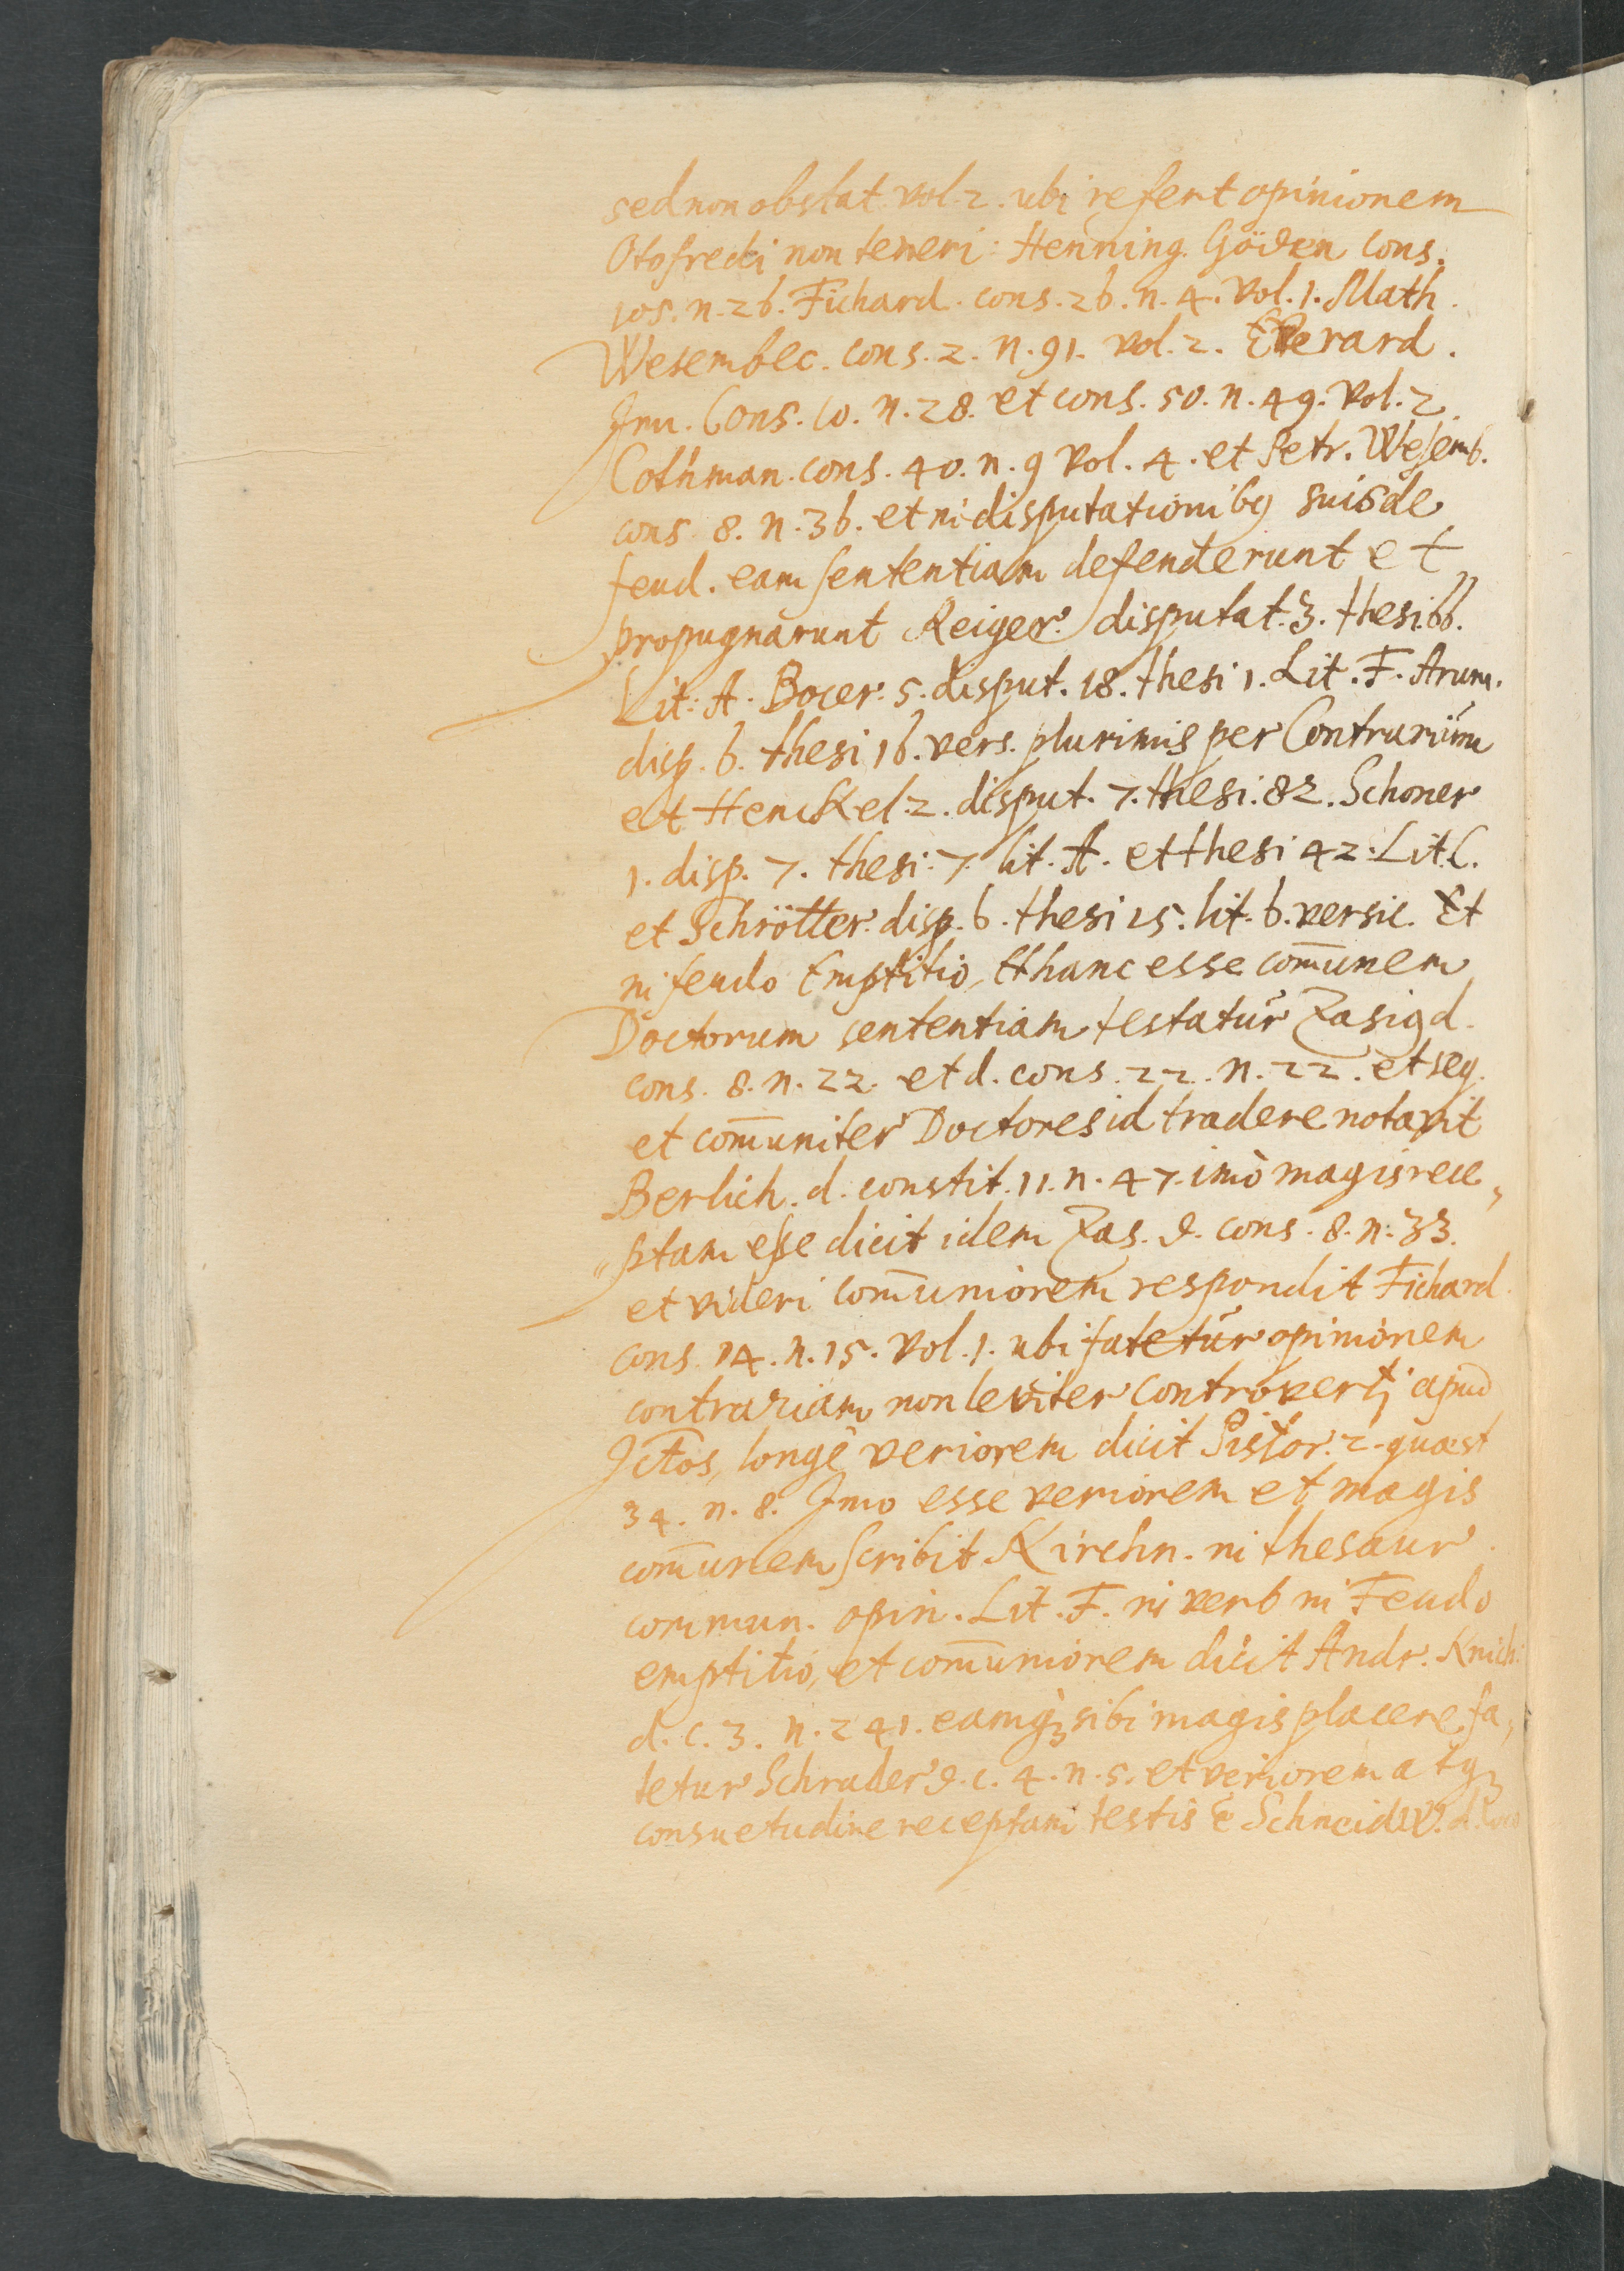 sed non obstat. vol. 2. ubi refert opinionem
Otofredi non teneri: Henning. Göden Cons.
105. n. 26. Fichard. cons. 26. n. 4. Vol. 1. Math.
Wesembec. cons. 2. n. 91. vol. 2. Everard.
Jun. Cons. 10. n. 28. et cons. 50. n. 49. Vol. 2.
Cothman. cons. 40. n. 9 Vol. 4. et Petr. Wesemb.
cons. 8. n. 36. et in disputationibꝰ suis de
feud. eam sententiam defenderunt et
propugnarunt Reiger. disputat. 3. thesi. 66.
Lit: A. Bocer. 5. disput. 18. thesi 1. Lit. F. Arum.
disp. 6. thesi 16. vers. plurimis per Contrarium
et Henckel. 2. disput. 7. thesi. 82. Schoner
1. disp. 7. thesi. 7. lit. A. et thesi 42. Lit. C.
et Schrötter. disp. 6. thesi 25. lit. b. versic. Et
in feudo Emptitio, Et hanc esse com̄unem
Doctorum sententiam testatur Zasig d.
cons. 8. n. 22. et d. cons. 22. n. 22. et seq.
et com̄uniter Doctores id tradere notavit
Berlich. d. constit. 11. n. 47. imò magis rece„
„ptam esse dicit idem Zas. d. cons. 8. n. 33.
et videri com̄uniorem respondit Fichard.
cons. 14. n. 15. Vol. 1. ubi fatetur opinionem
contrariam non leviter controverti apud
JCtos, longè veriorem dicit Pistor. 2. quæst
34. n. 8. Jmo esse veriorem et magis
com̄unem scribit Kirchn. in thesaur.
commun. opin. Lit. F. in verb in Feudo
emptitio, et com̄uniorem dicit Andr. Knich.
d. c. 3. n. 241. eamqꝫ sibi magis placere fa„
tetur Schrader d. c. 4. n. 5. et veriorem atqꝫ
consuetudine receptam testis ē Schneidw. d.